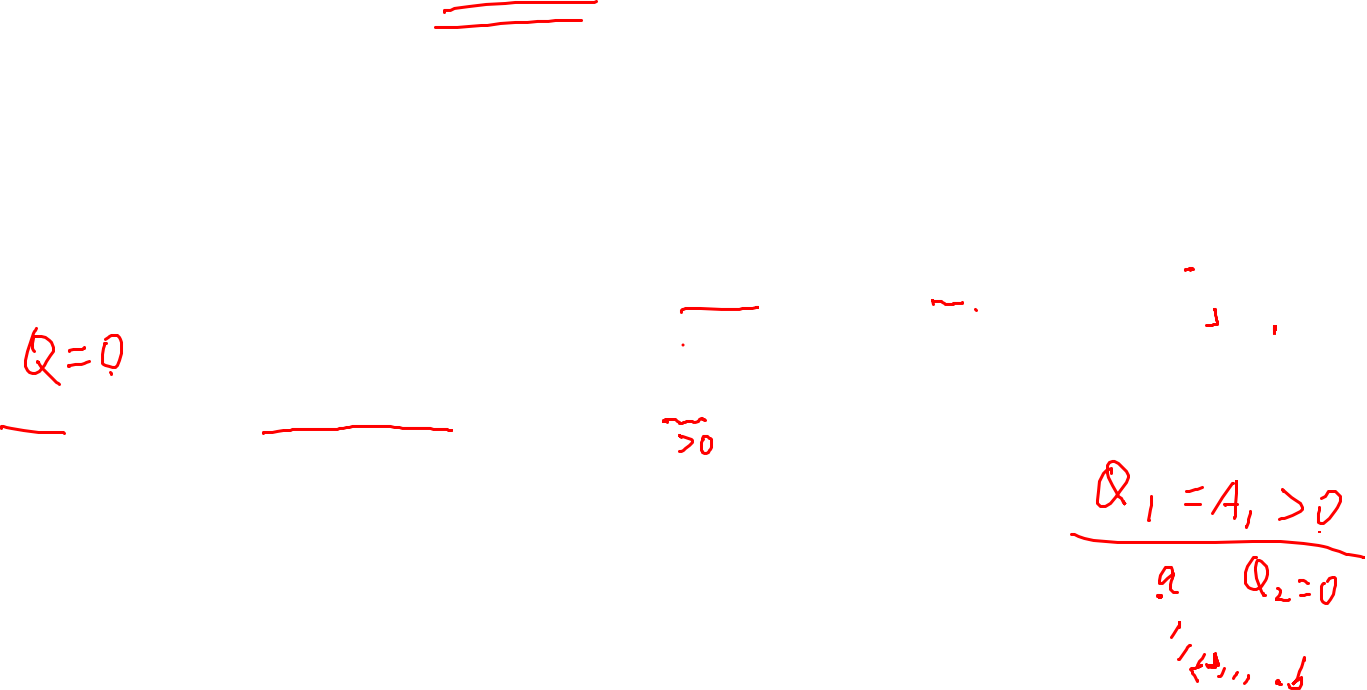 Q=0
>0
Q₁=A₁>0
a Q₂=0
b